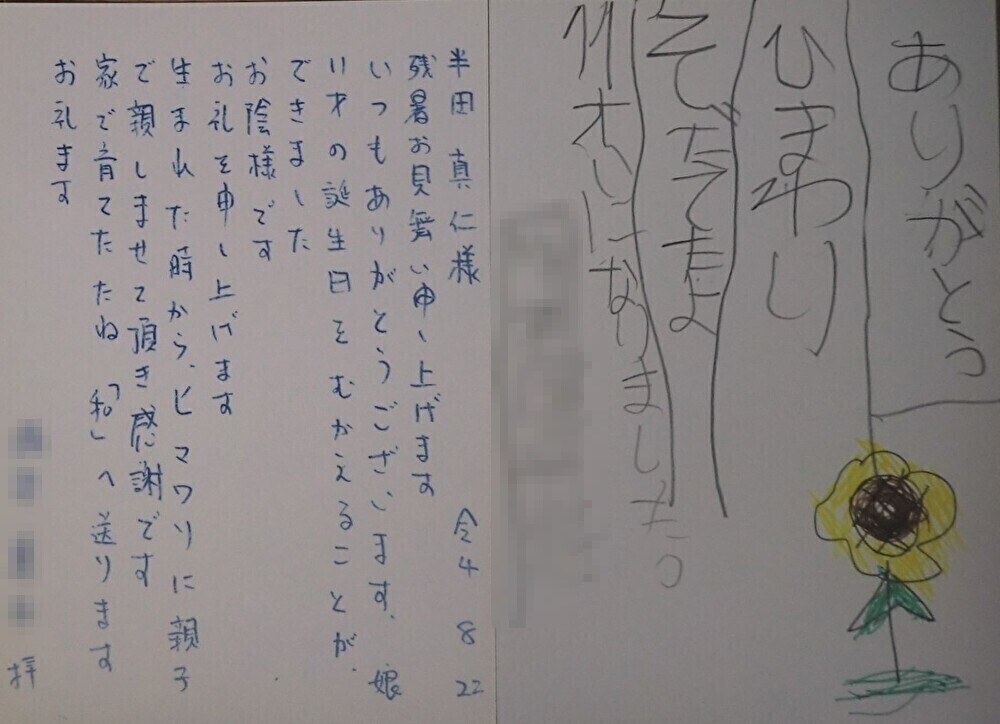 ありがとう
ひまわり
そだてたよ
11才いになりました。
半田 真仁様
令4 8 22
残暑お見舞い申し上げます
いつもありがとうございます.娘
11才の誕生日をむかえることが.
できました
お陰様です
お礼を申し上げます
生まれた時から、ヒマワリに親子
で親しませて頂き感謝です
家で育てたたね 「和」へ送ります
お礼ます
拝